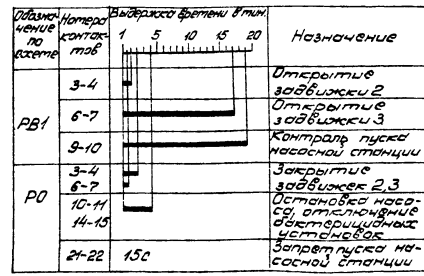 Обозна-
чение
по
схеме
Номера
контак-
тов
Выдержка времени в мин.
1 5 10 15 20
Назначение
РВ1
3-4
Открытие
задвижки 2
6-7
Открытие
задвижки 3
9-10
Контроль пуска
насосной станции
РО
3-4
6-7
Закрытие
задвижек 2,3
10-11
14-15
Остановка насо-
са, отключение
бактерицидных
установок
21-22
15с
Запрет пуска на-
сосной станции